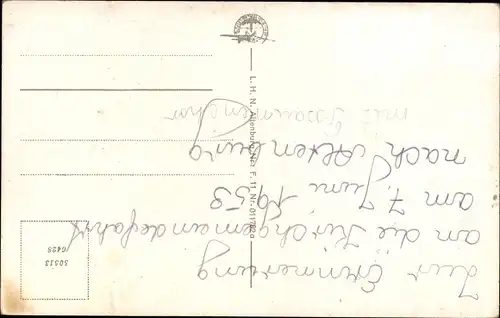 Zur Erinnerung
an die Kirchgemeindefahrt
am 7. Juni 1953
nach Altenburg
mit Posaunenchor
L. H. N. Altenburg, Nr. F. 11. Nr.
50513
/0428